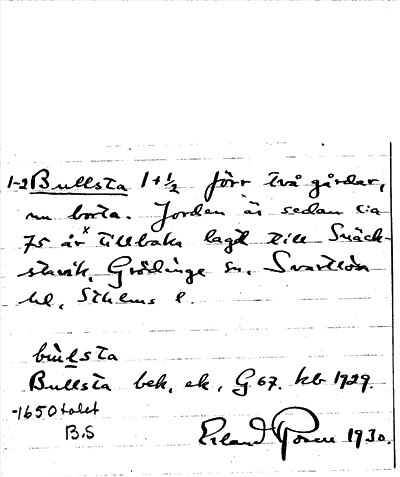 1-2 Bullsta 1+½ förr två gårdar,
nu borta. Jorden är sedan cia
75 årˣ tillbaka lagd till Snäck-
stavik, Grödinge sn, Svartlösa
hd, Sthlms l.
bùlsta
Bullsta bek. ek, G 67. kb 1929.
-1650 talet
B.S
Erland Rosell 1930.